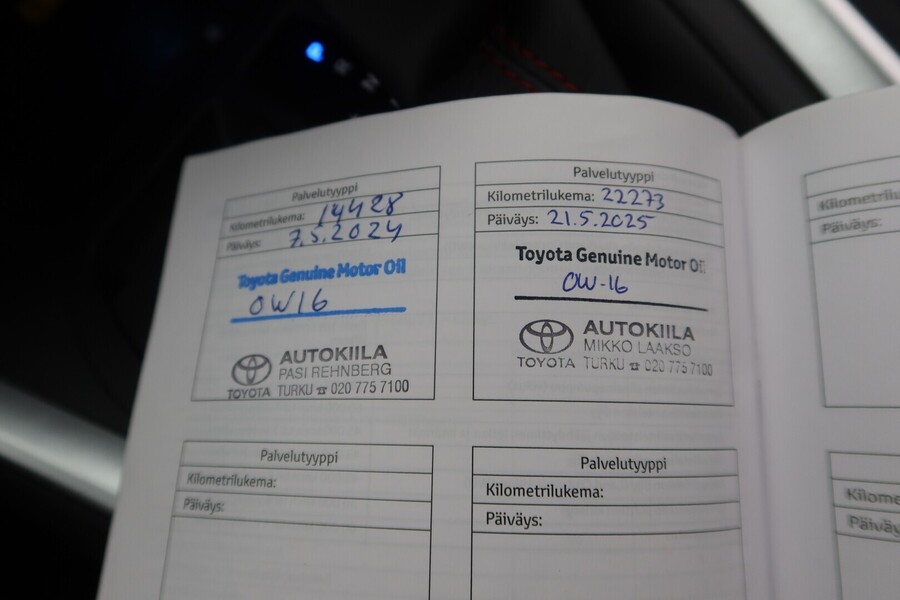 R
N
Palvelutyyppi
Kilometrilukema: 14428
Päiväys: 7.5.2024
Toyota Genuine Motor Oil
0W16
TOYOTA
AUTOKIILA
PASI REHNBERG
TURKU ☎ 020 775 7100
Palvelutyyppi
Kilometrilukema: 22273
Päiväys: 21.5.2025
Toyota Genuine Motor Oil
0W-16
TOYOTA
AUTOKIILA
MIKKO LAAKSO
TURKU ☎ 020 775 7100
Palvelutyyppi
Kilometrilukema:
Päiväys:
Palvelutyyppi
Kilometrilukema:
Päiväys:
Kilometrilu
Päiväys:
Kilome
Päiväy